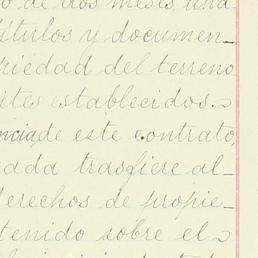 o de dos meses, una
títulos y documen_
piedad del terreno
ites establecidos.
ncia, de este contrato,
ada trasfiere al_
derechos de propie_
tenido sobre el